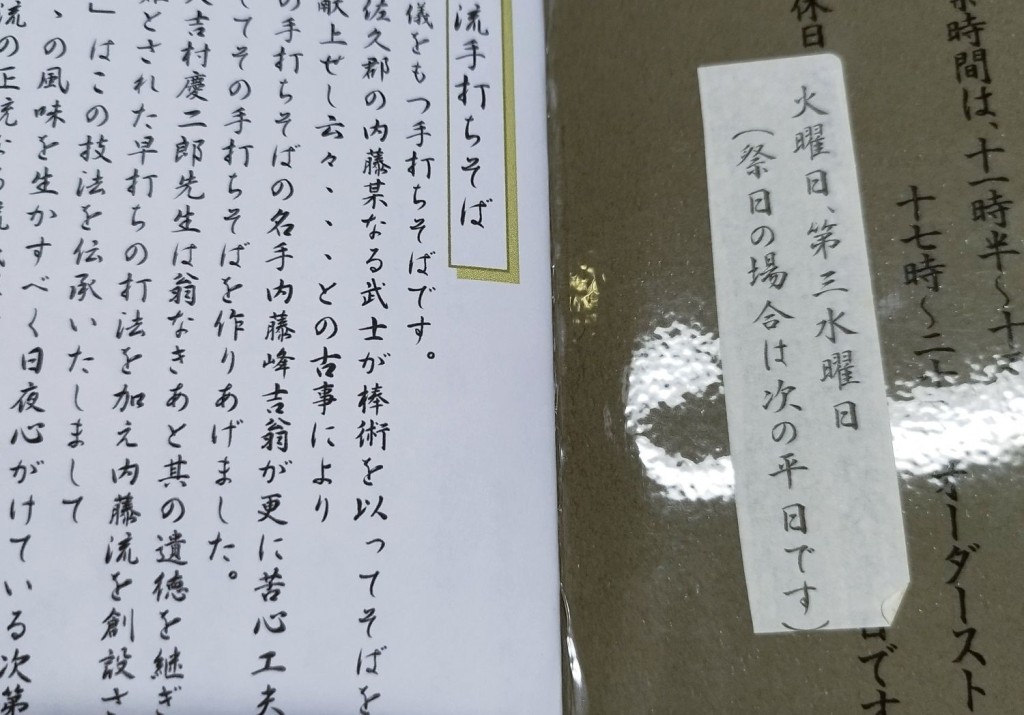 業時間は、十一時半〜十
十七時〜二
オーダースト
休日
火曜日、第三水曜日
(祭日の場合は次の平日です)
です
流手打ちそば
儀をもつ手打ちそばです。
佐久郡の内藤某なる武士が棒術を以ってそばを
献上せし云々、、、との古事により
の手打ちそばの名手内藤峰吉翁が更に苦心工夫
してその手打ちそばを作りあげました。
吉村慶二郎先生は翁なきあと其の遺徳を継ぎ
とされた早打ちの打法を加え内藤流を創設さ
」はこの技法を伝承いたしまして
、の風味を生かすべく日夜心がけている次第
流の正統なる